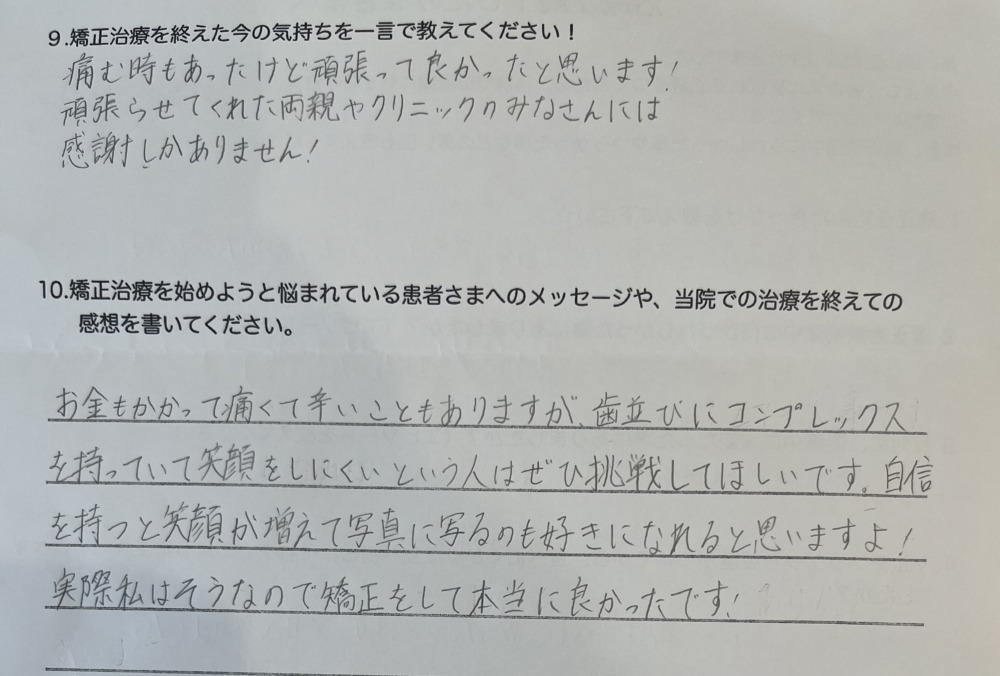 9.矯正治療を終えた今の気持ちを一言で教えてください！
痛む時もあったけど頑張って良かったと思います！
頑張らせてくれた両親やクリニックのみなさんには
感謝しかありません！
10.矯正治療を始めようと悩まれている患者さまへのメッセージや、当院での治療を終えての
感想を書いてください。
お金もかかって痛くて辛いこともありますが、歯並びにコンプレックス
を持っていて笑顔をしにくいという人はぜひ挑戦してほしいです。自信
を持つと笑顔が増えて写真に写るのも好きになれると思いますよ！
実際私はそうなので矯正をして本当に良かったです！